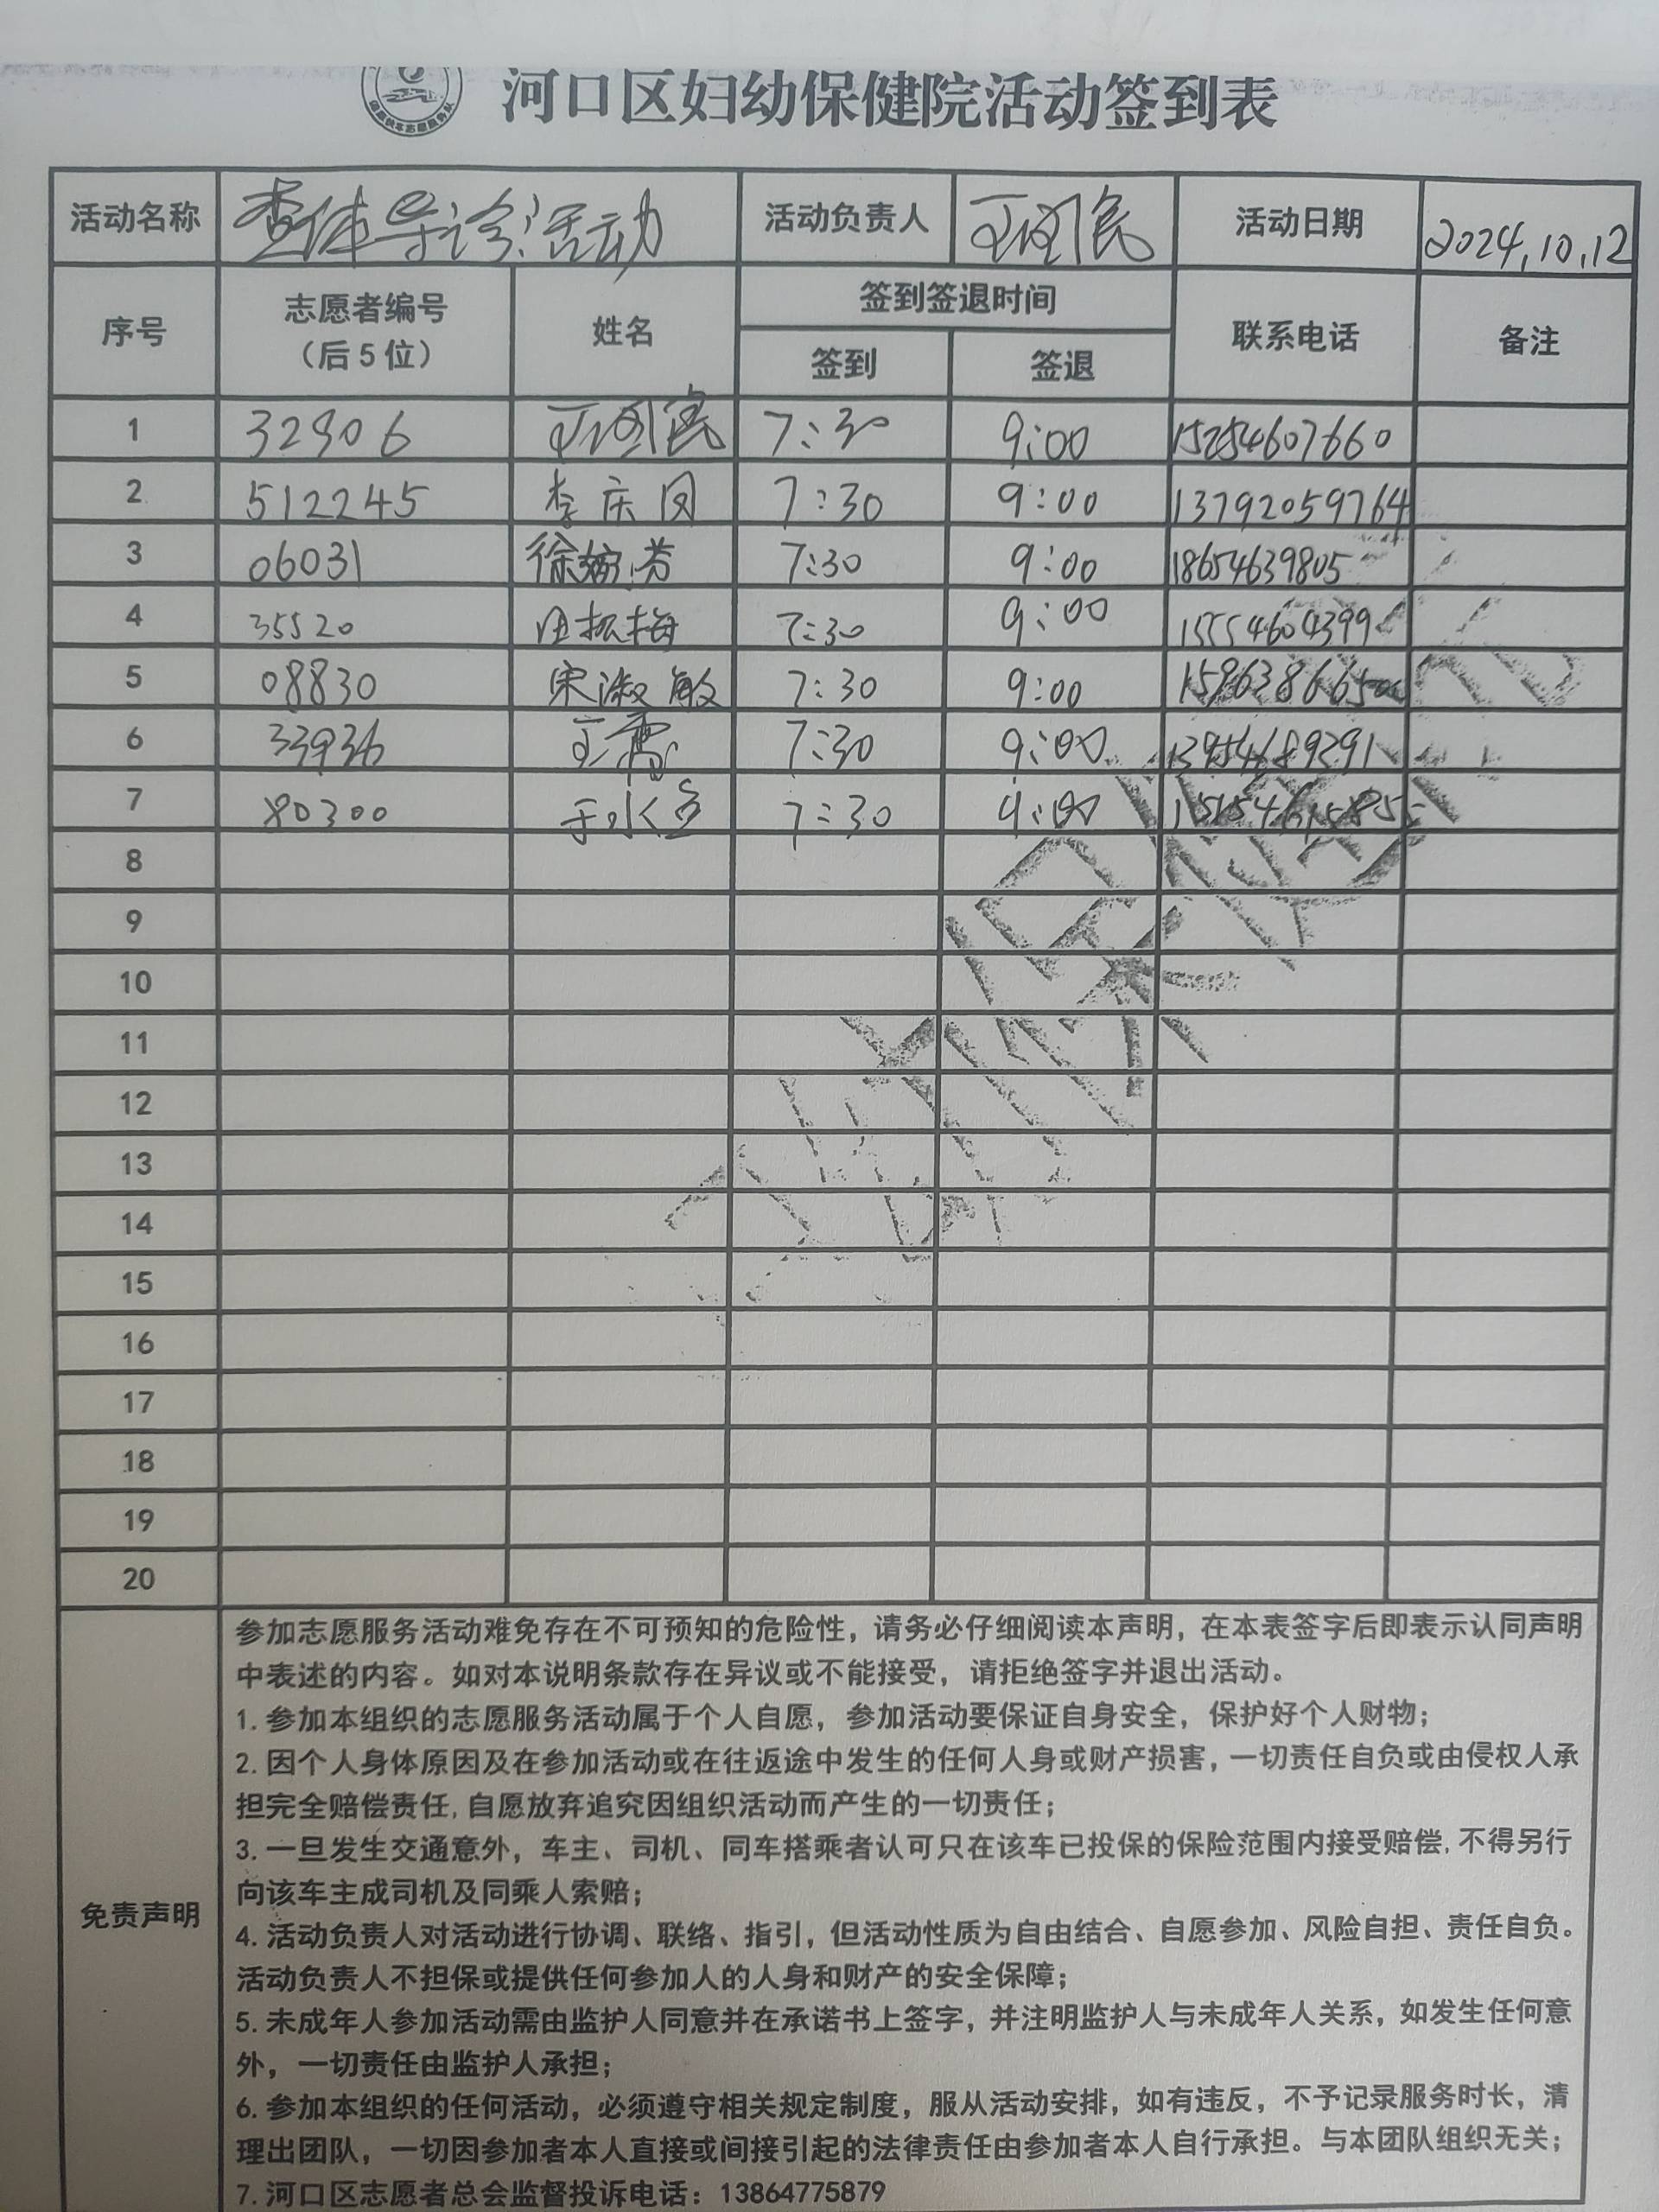 河口区妇幼保健院活动签到表
活动名称 查体导诊活动 活动负责人 活动日期 2024.10.12
序号 志愿者编号（后5位） 姓名 签到签退时间 联系电话 备注
签到 签退
1 32906 7:30 9:00 15254607660
2 512245 李庆凤 7:30 9:00 13792059764
3 06031 徐婉芬 7:30 9:00 18654639805
4 35520 田振梅 7:30 9:00 15554604399
5 08830 宋淑敏 7:30 9:00
6 33936 王霞 7:30 9:00 13954689291
7 80300 7:30 9:00
8
9
10
11
12
13
14
15
16
17
18
19
20
免责声明
参加志愿服务活动难免存在不可预知的危险性，请务必仔细阅读本声明，在本表签字后即表示认同声明
中表述的内容。如对本说明条款存在异议或不能接受，请拒绝签字并退出活动。
1.参加本组织的志愿服务活动属于个人自愿，参加活动要保证自身安全，保护好个人财物；
2.因个人身体原因及在参加活动或在往返途中发生的任何人身或财产损害，一切责任自负或由侵权人承
担完全赔偿责任,自愿放弃追究因组织活动而产生的一切责任；
3.一旦发生交通意外，车主、司机、同车搭乘者认可只在该车已投保的保险范围内接受赔偿,不得另行
向该车主成司机及同乘人索赔；
4.活动负责人对活动进行协调、联络、指引，但活动性质为自由结合、自愿参加、风险自担、责任自负。
活动负责人不担保或提供任何参加人的人身和财产的安全保障；
5.未成年人参加活动需由监护人同意并在承诺书上签字，并注明监护人与未成年人关系，如发生任何意
外，一切责任由监护人承担；
6.参加本组织的任何活动，必须遵守相关规定制度，服从活动安排，如有违反，不予记录服务时长，清
理出团队，一切因参加者本人直接或间接引起的法律责任由参加者本人自行承担。与本团队组织无关；
7.河口区志愿者总会监督投诉电话：13864775879